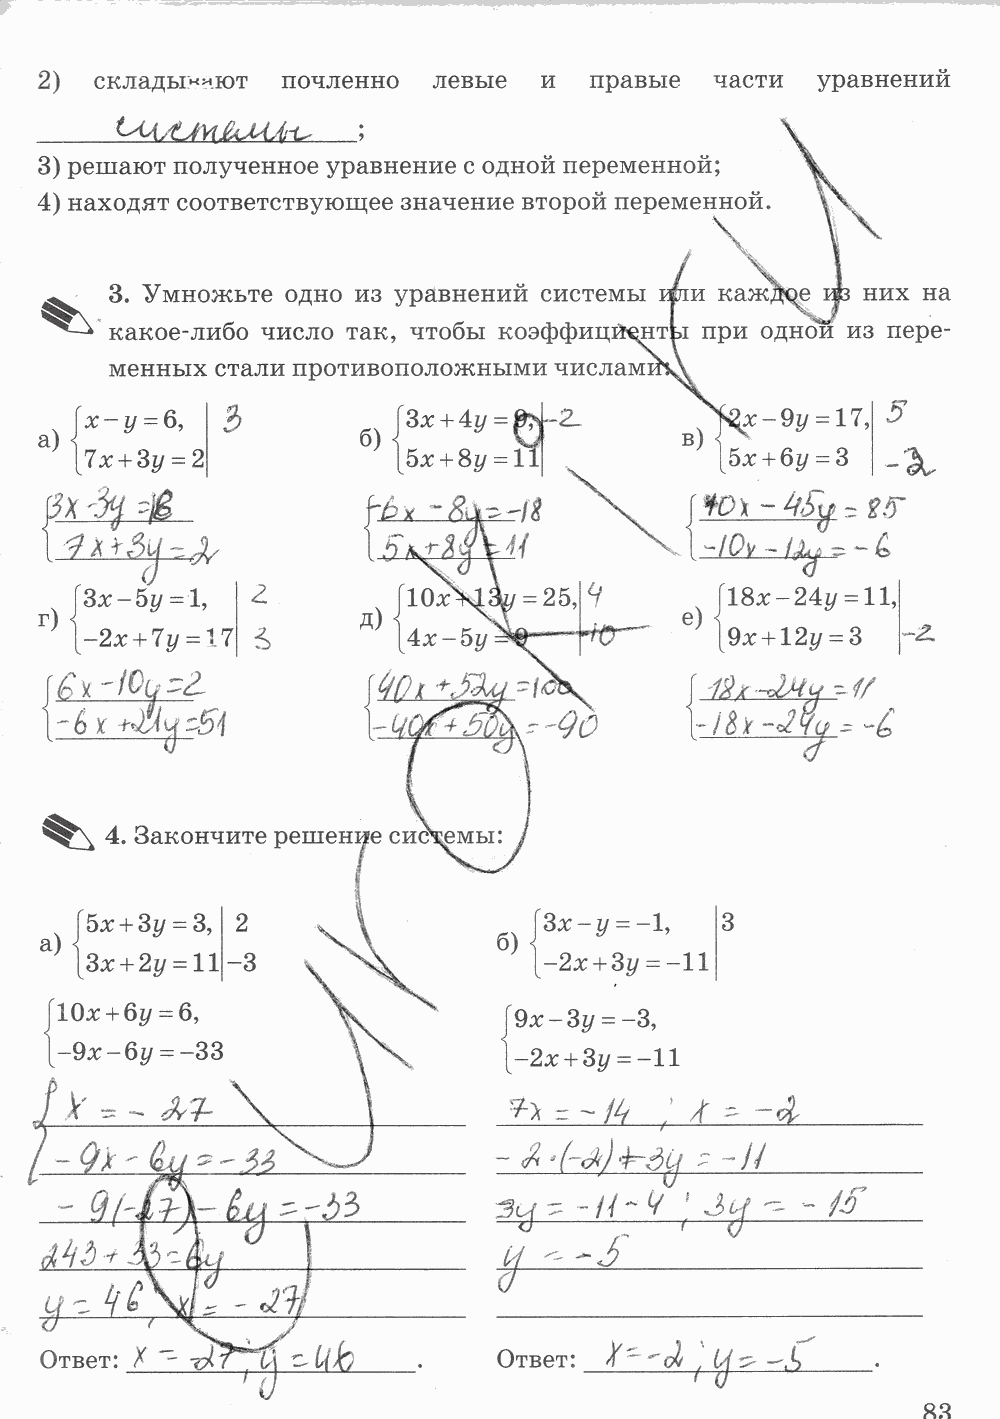 2) складывают почленно левые и правые части уравнений
системы ;
3) решают полученное уравнение с одной переменной;
4) находят соответствующее значение второй переменной.
3. Умножьте одно из уравнений системы или каждое из них на
какое-либо число так, чтобы коэффициенты при одной из пере-
менных стали противоположными числами:
а) x − y = 6, 3
7x + 3y = 2
3x - 3y = 18
7x + 3y = 2
б) 3x + 4y = 9, -2
5x + 8y = 11
-6x - 8y = -18
5x + 8y = 11
в) 2x − 9y = 17, 5
5x + 6y = 3 -2
10x - 45y = 85
-10x - 12y = -6
г) 3x − 5y = 1, 2
−2x + 7y = 17 3
6x - 10y = 2
-6x + 21y = 51
д) 10x + 13y = 25, 4
4x − 5y = 9 -10
40x + 52y = 100
-40x + 50y = -90
е) 18x − 24y = 11,
9x + 12y = 3 -2
18x - 24y = 11
-18x - 24y = -6
4. Закончите решение системы:
а) 5x + 3y = 3, 2
3x + 2y = 11 −3
10x + 6y = 6,
−9x − 6y = −33
x = - 27
- 9x - 6y = - 33
- 9(-27) - 6y = -33
243 + 33 = 6y
y = 46 ; x = - 27
Ответ: x = -27 ; y = 46 .
б) 3x − y = −1, 3
−2x + 3y = −11
9x − 3y = −3,
−2x + 3y = −11
7x = -14 ; x = -2
- 2·(-2) + 3y = -11
3y = -11 - 4 ; 3y = - 15
y = -5
Ответ: x = -2 ; y = -5 .
83